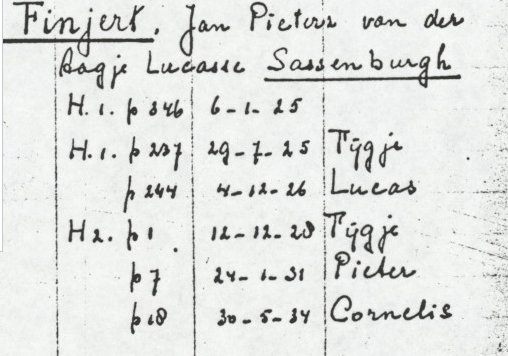 Finjert, Jan Pieters van der
Aagje Lucasse Sassenburgh
H. 1. p 346 6-1-25
H. 1. p 237 29-7-25 Tÿgje
p 244 4-12-26 Lucas
H 2. p 1 12-12-28 Tÿgje
p 7 24-1-31 Pieter
p 18 30-5-34 Cornelis